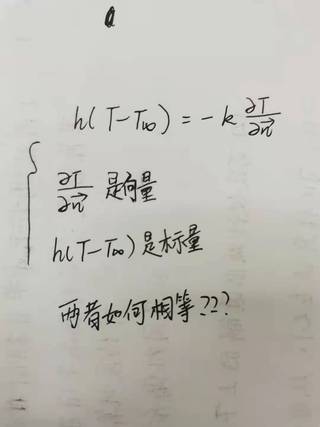 h(T-T∞) = -k ∂T/∂n⃗
∂T/∂n⃗ 是向量
h(T-T∞)是标量
两者如何相等???